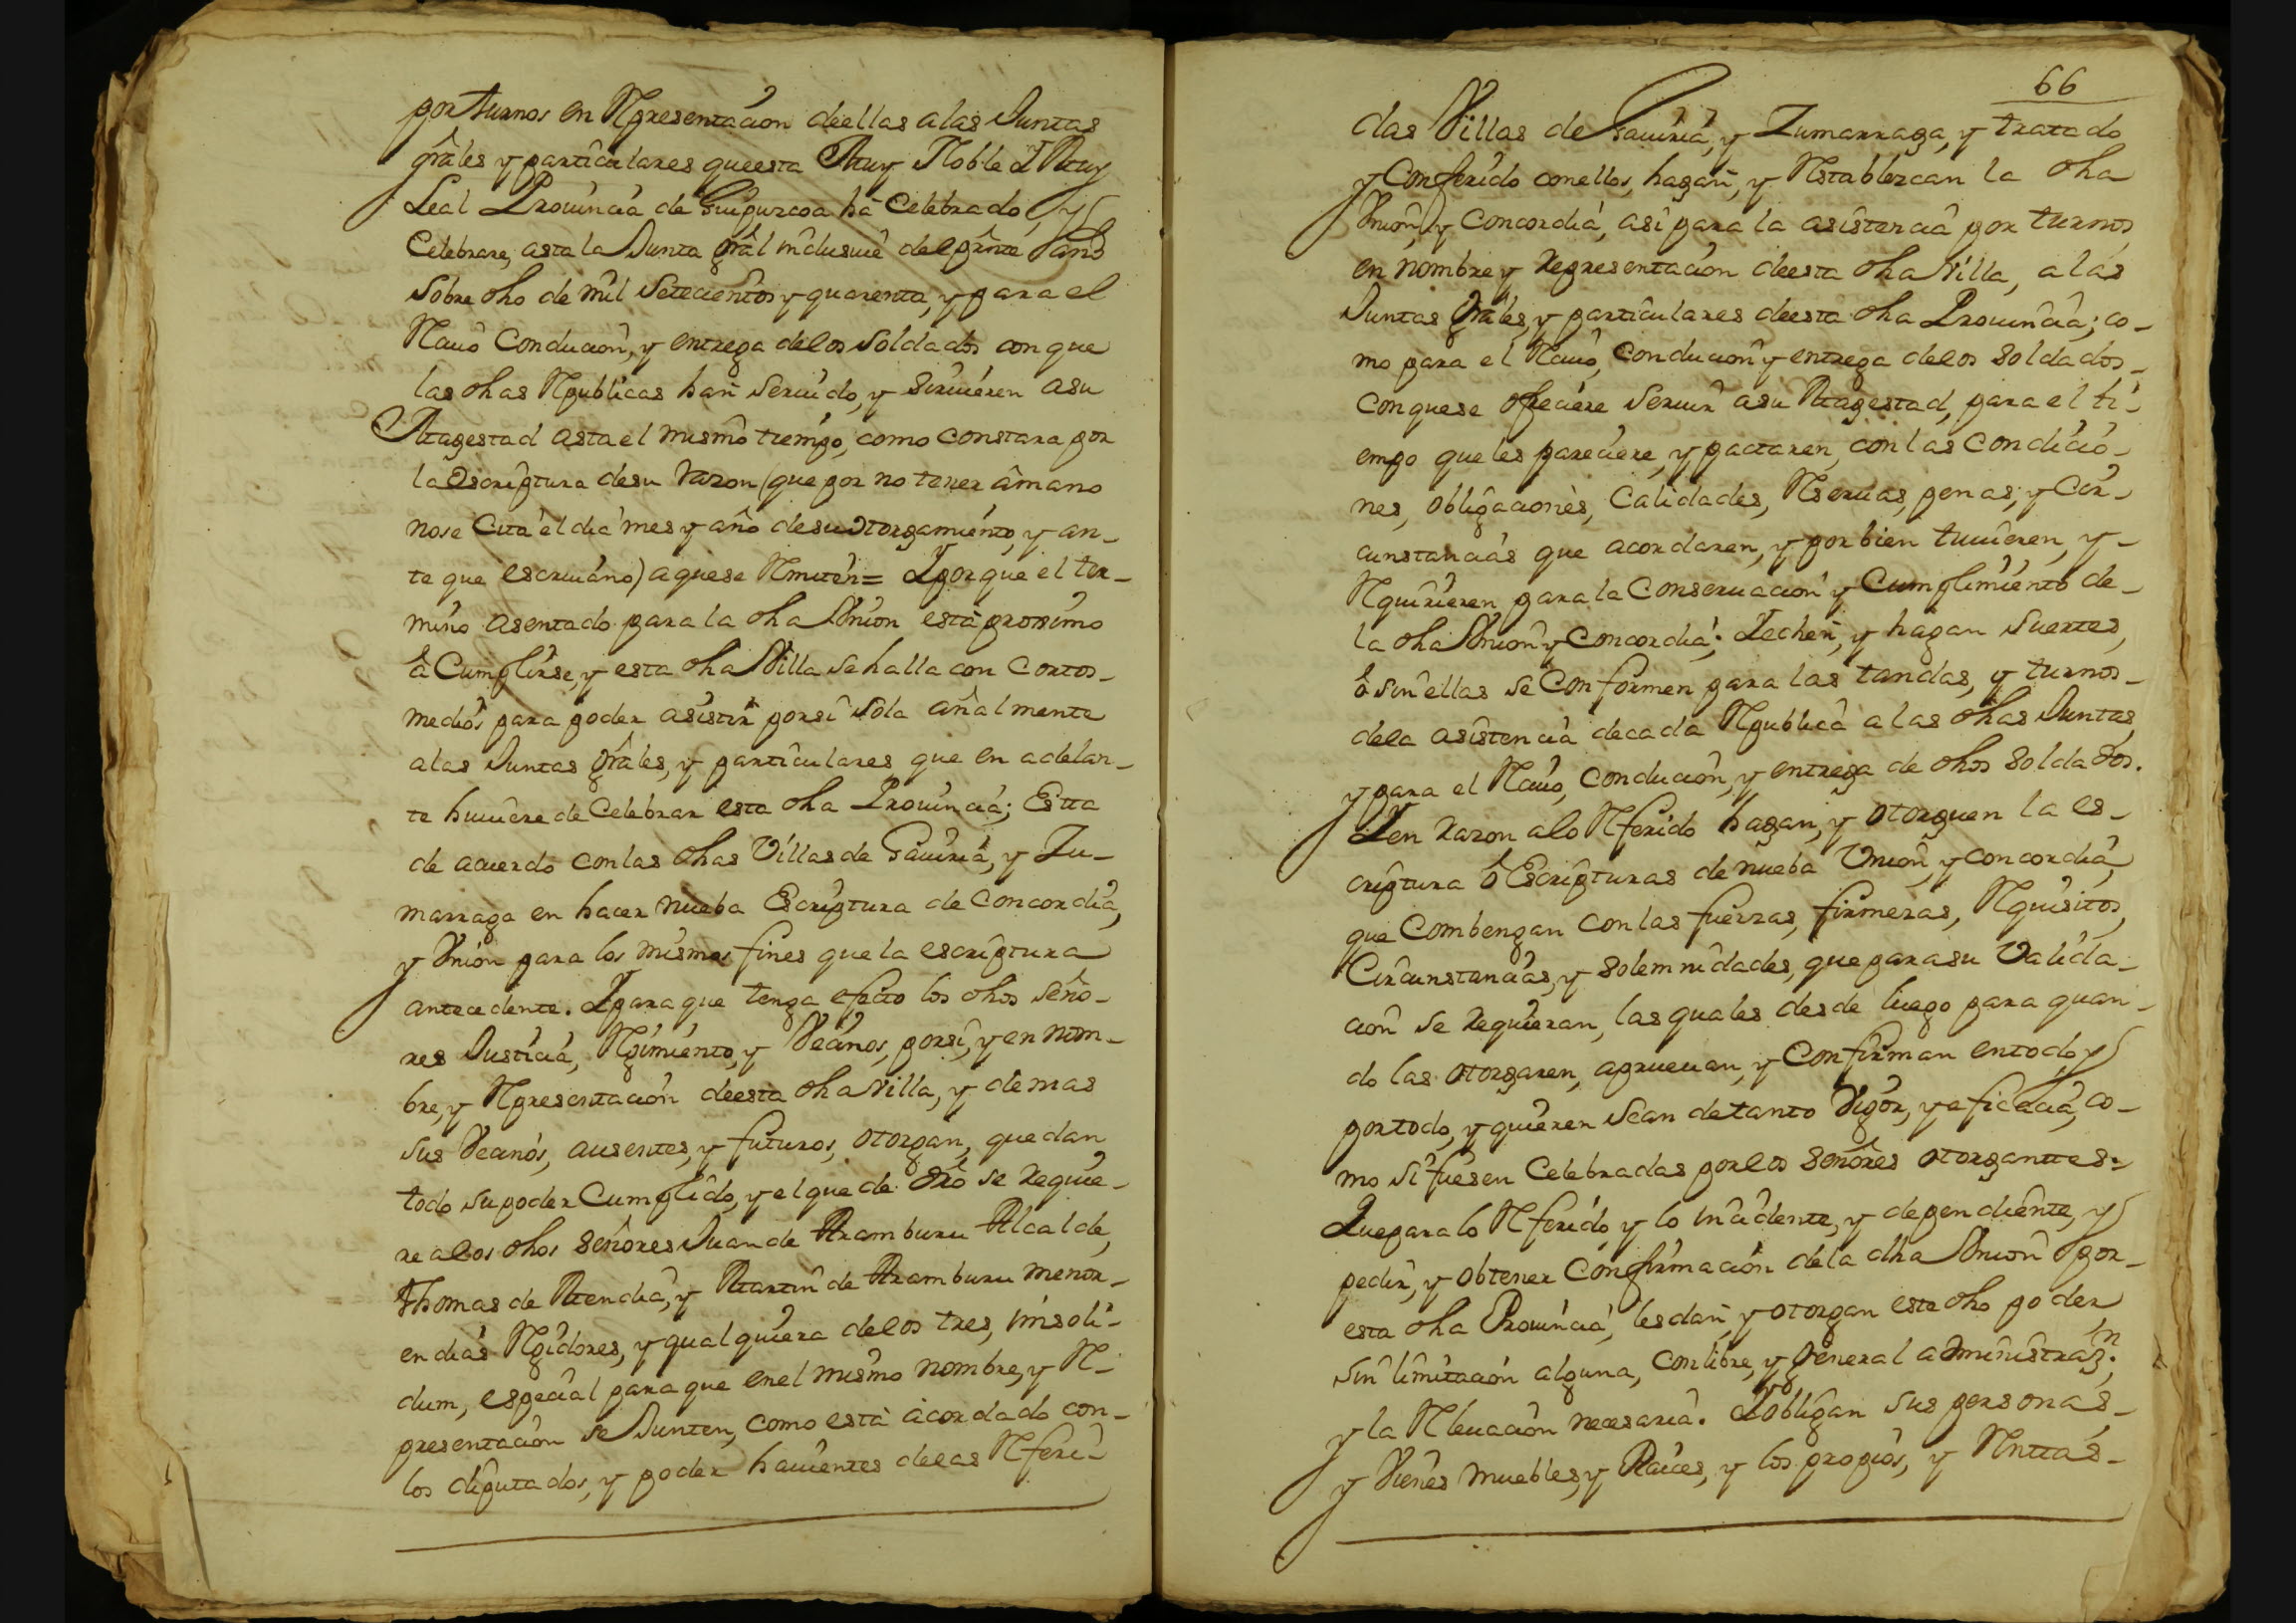 por turnos en Rpresentacion deellas alas Juntas
grâles y particulares queesta Muy Noble Y Muy
Leal Prouincia de Guipuzcoa há Celebrado, y
Celebrare, asta la Junta grâl inclusiuê del prînte año
sobre dho de mil Setecientos y quarenta, y para el
conducion, y entrega delos soldados con que
las dhas Rpublicas hañ seruido, y siruieren asu
Magestad asta el mismo tiempo, como constara por
la Escriptura desu razon (que por no tener âmano
nose Cita el dia mes y año desu otorgamiento, y an-
te que escriuano) aquese Rmiten= Y porque el ter-
mino asentado para la dha Vnion està proximo
â Cumplirse, y esta dha Villa se halla con Cortos-
medios para poder asistir porsi sola añalmente
alas Juntas grâles, y particulares que en adelan-
te huuiere de Celebrar esta dha Prouincia; Estta
de acuerdo con las dhas Villas de Gauiria, y Zu-
marraga en hacer nueba Escriptura de Concordia,
y Vnion para los mismos fines que la escriptura
antecedente. Y para que tenga efecto los dhos seño-
res Justicia, Rgimiento, y Vecinos, porsi, y en nom-
bre, y Rpresentacion deesta dha Villa, y demas
sus Vecinos, ausentes, y futuros, otorgan, que dan
todo su poder Cumplido, y el que de drô se requie-
re alos dhos señores Juan de Aramburu Alcalde,
Thomas de Mendia, y Martin de Aramburu Mente-
en dias Rgidores, y qual quiera delos tres, insoli-
dum, especial para que en el mismo nombre, y R-
presentacion se Junten, como està acordado con-
los diputados, y poder hauientes delas Rferi-
66
das Villas de Gauiria, y Zumarraga, y tratado
y Conferido conellos, hagañ, y Rstablezcan la dha
Vnion, y concordia, asi para la asistencia por turnos
en nombre y representacion deesta dha Villa, alas
Juntas grâles, y particulares deesta dha Prouincia; co-
mo para el conducion y entrega delos soldados-
conquese ofreciere seruir asu Magestad, para el ti-
empo que les pareciere, y pactaren, con las condicio-
nes, obligaciones, Calidades, Rseruas, penas, y Cir-
cunstancias que acordaren, y por bien tuuieren, y-
Rquirieren para la Conseruacion y Cumplimiento de-
la dha Vnion y Concordia; Y echen, y hagan suertes,
ô sin ellas se Conformen para las tandas, y turnos-
dela asistencia decada Rpublica alas dhas Juntas,
y para el conducion, y entrega de dhos soldados.
Y en razon alo Rferido hagan, y otorguen la es-
criptura ô Escripturas de nueba Vnion, y concordia,
que Combengan con las fuerzas, firmezas, Rquisitos,
Circunstancias, y solemnidades, que parasu Valida-
cion se requieran, las quales desde luego para quan-
do las otorgaren, aprueuan, y Confirman entodo, y
portodo, y quieren sean detanto Vigor, y eficacia, co-
mo si fuesen Celebradas porlos señores otorganttes:
Que para lo Rferido, y lo incidente, y dependiente, y
pedir, y obtener Confirmacion dela dha Vnion por-
esta dha Prouincia, les dañ, y otorgan este dho poder,
sin limitacion alguna, con libre, y general administraz.n
y la Rleuacion necesaria. Y obligan sus personas-
y Vienes muebles, y Raices, y los propios, y Rnttas-